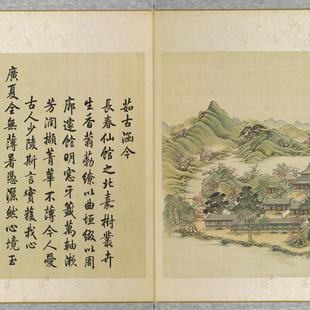 茹古涵今
長春仙館之北嘉樹叢卉
生香蓊葧繚以曲垣綴以周
廊邃館明窻牙籤萬軸漱
芳潤擷菁華不薄今人愛
古人少陵斯言實獲我心
廣夏全無薄暑憑灑然心境玉